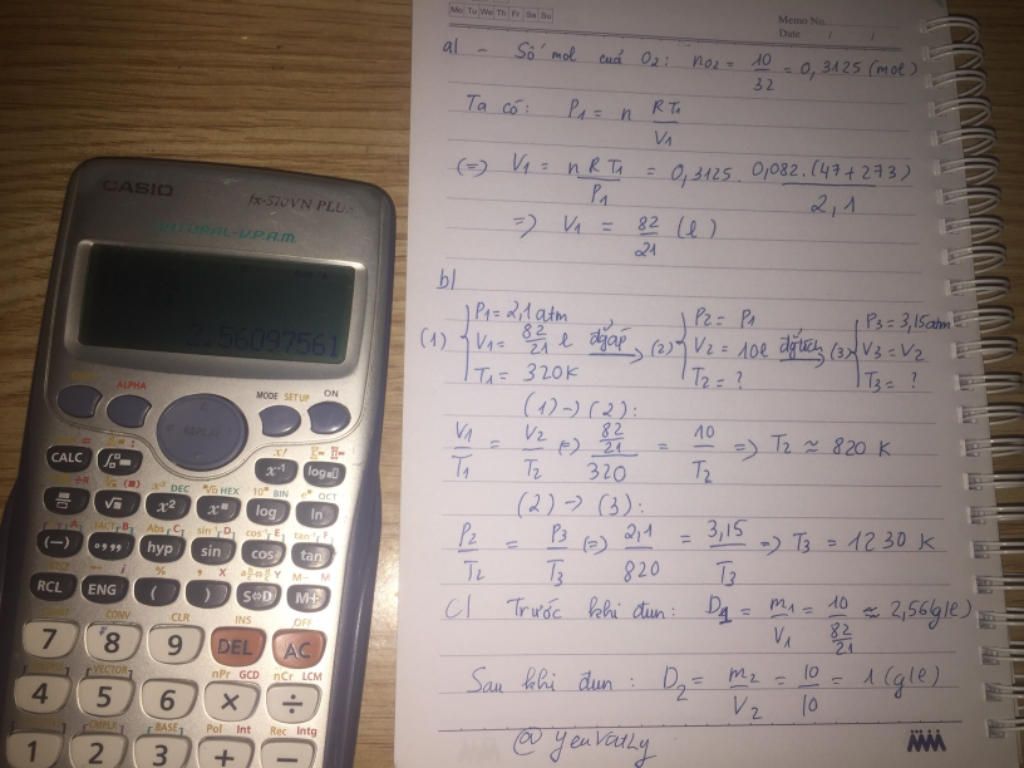 Mo Tu We Th Fr Sa Su
Memo No.
Date / /
a) - Số mol của O₂: nO₂ = 10/32 = 0,3125 (mol)
Ta có: P₁ = n RT₁/V₁
(=) V₁ = nRT₁/P₁ = 0,3125 . 0,082.(47+273)/2,1
=) V₁ = 82/21 (l)
b)
(1) { P₁ = 2,1 atm V₁ = 82/21 l T₁ = 320K đẳg áp → (2) { P₂ = P₁ V₂ = 10l T₂ = ? đẳg tích → (3) { P₃ = 3,15atm V₃ = V₂ T₃ = ?
(1) → (2):
V₁/T₁ = V₂/T₂ (=) 82/21/320 = 10/T₂ =) T₂ ≈ 820 K
(2) → (3):
P₂/T₂ = P₃/T₃ (=) 2,1/820 = 3,15/T₃ =) T₃ = 1230 K
c) Trước khi đun: D₁ = m₁/V₁ = 10/82/21 ≈ 2,56(g/l)
Sau khi đun: D₂ = m₂/V₂ = 10/10 = 1 (g/l)
@ YeuVatLy
CASIO
fx-570VN PLUS
NATURAL-V.P.A.M.
2.56097561
ALPHA MODE SETUP ON
REPLAY
CALC x⁻¹ log
x² DEC HEX BIN OCT
√ x² x log ln
Abs sin⁻¹ cos⁻¹ tan⁻¹
(−) °,,, hyp sin cos tan
RCL ENG ( ) S⇔D M+
CONV CLR INS OFF
7 8 9 DEL AC
VECTOR nPr GCD nCr LCM
4 5 6 × ÷
CMPLX BASE Pol Int Rec Intg
1 2 3 + −